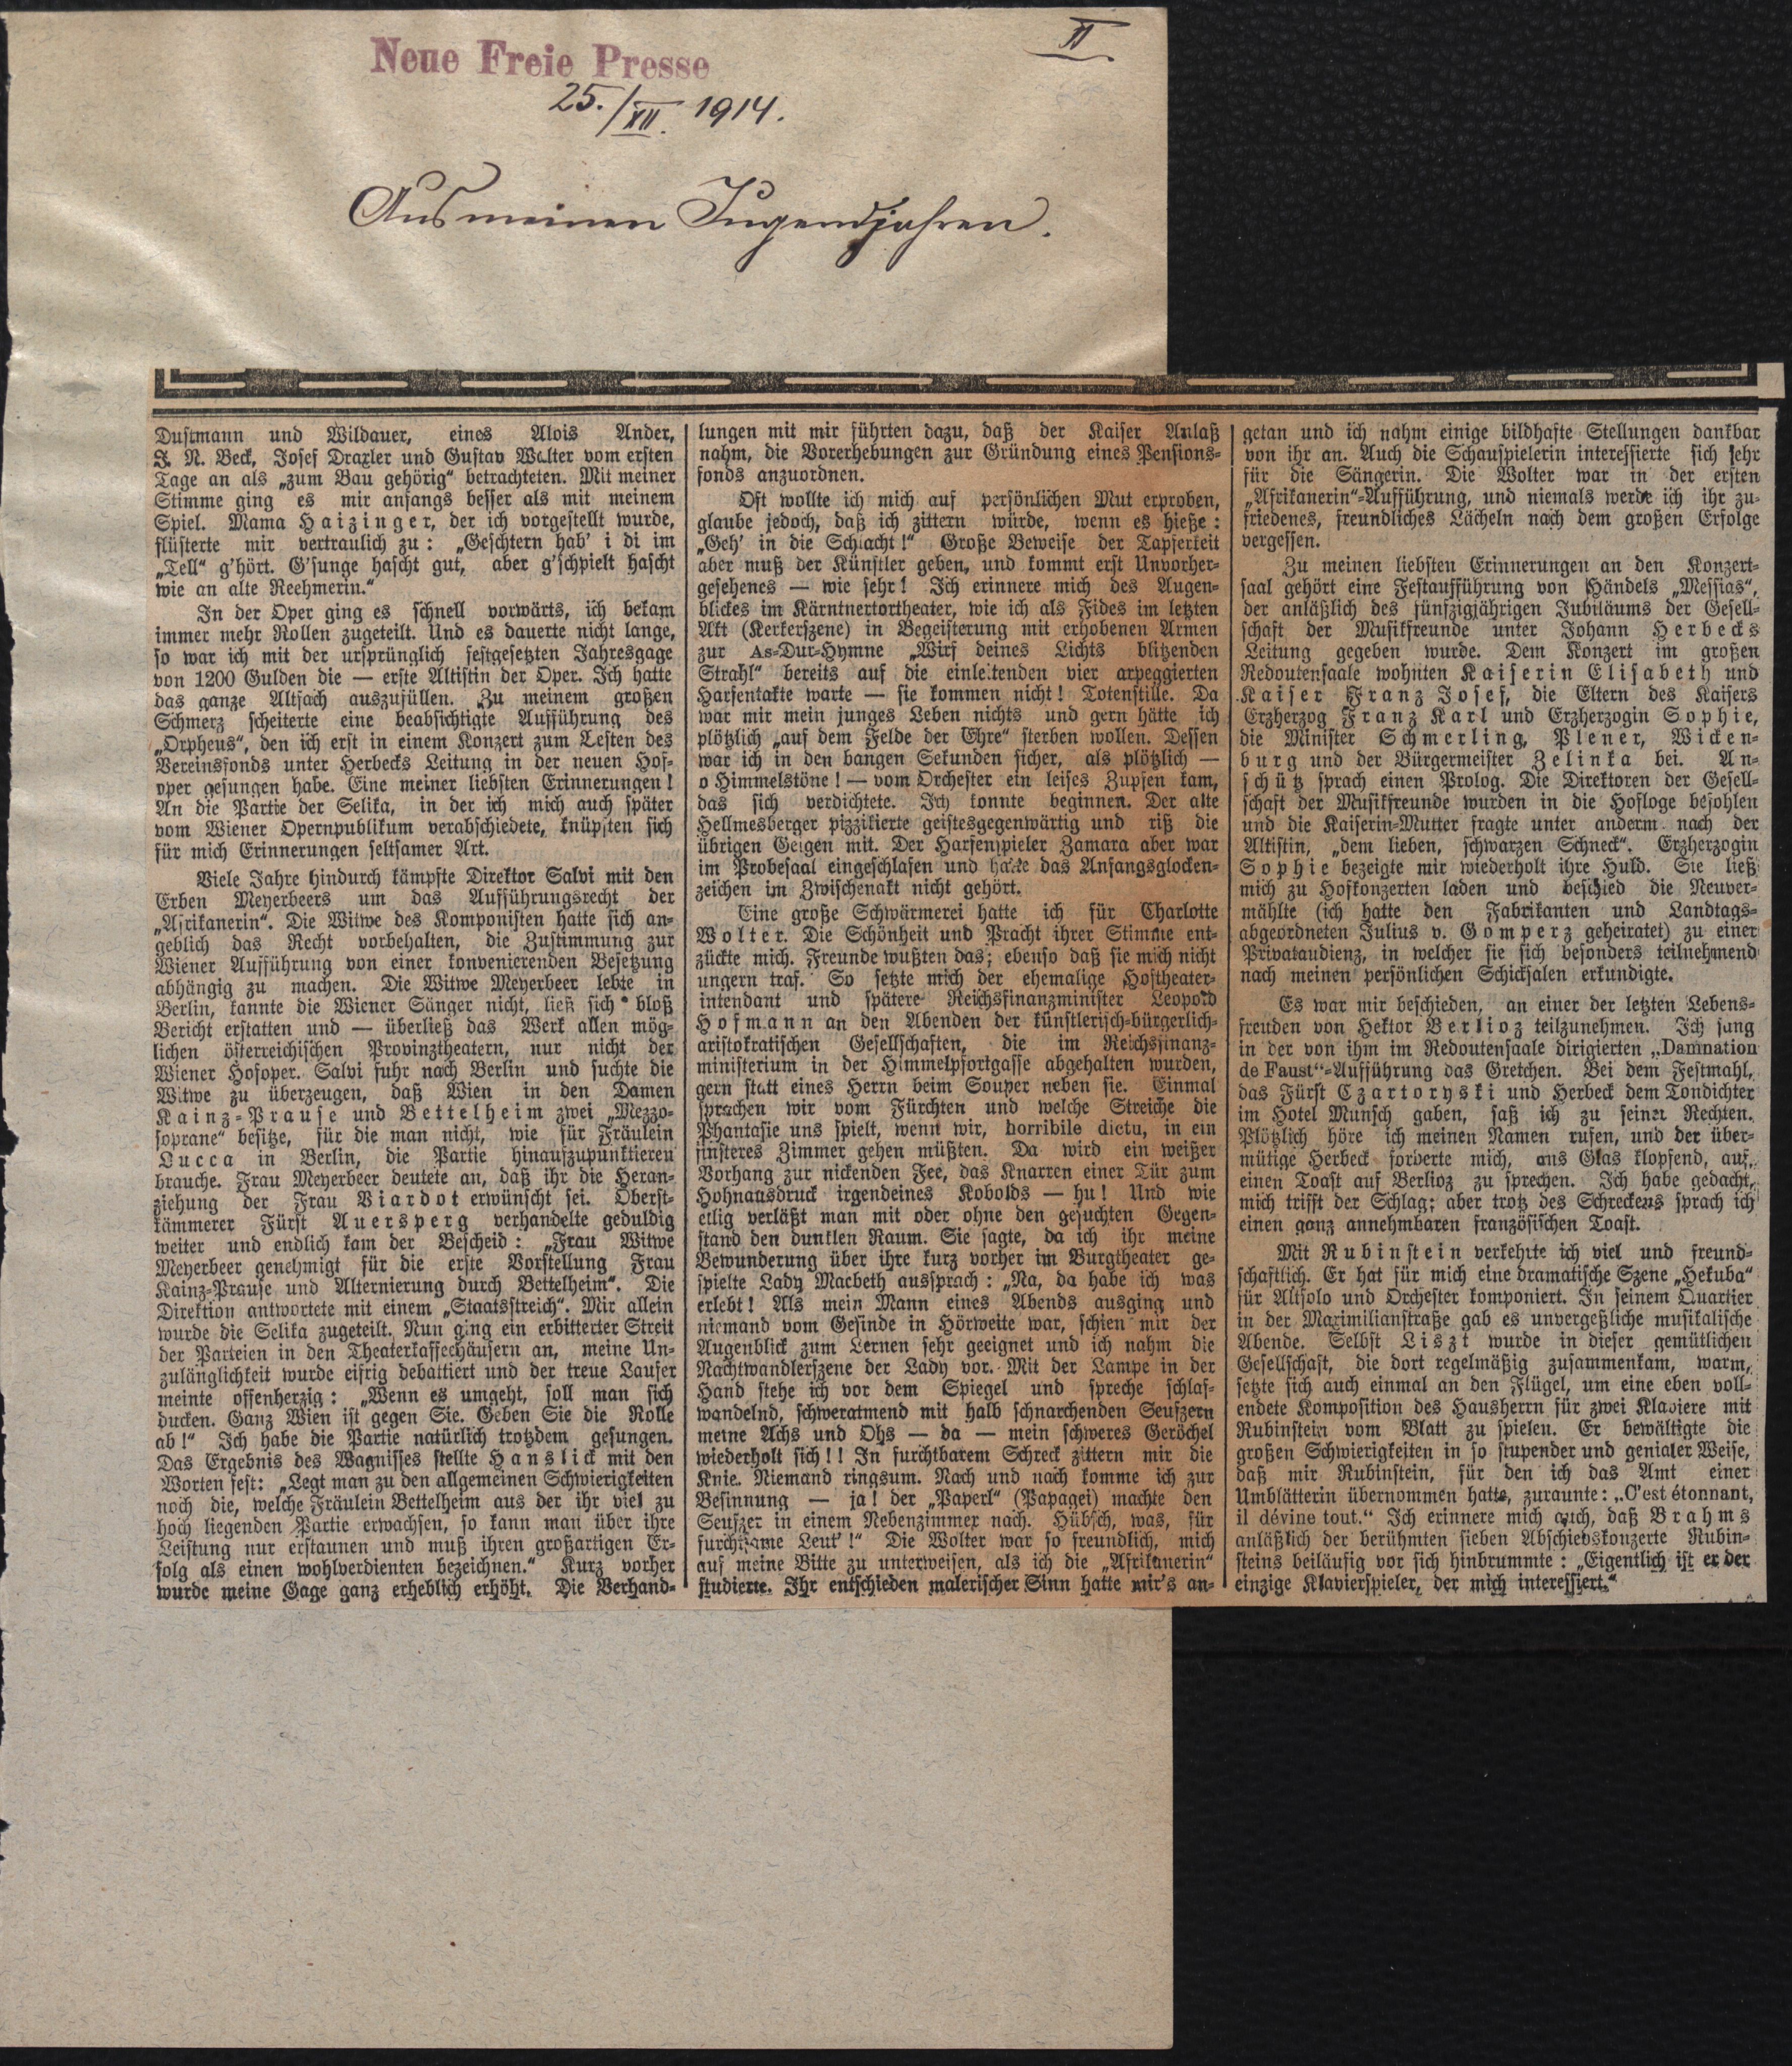 II
Neue Freie Presse
25./XII. 1914.
Aus meinen Jugendjahren.
Dustmann und Wildauer, eines Alois Ander,
J. N. Beck, Josef Draxler und Gustav Walter vom ersten
Tage an als „zum Bau gehörig“ betrachteten. Mit meiner
Stimme ging es mir anfangs besser als mit meinem
Spiel. Mama Haizinger, der ich vorgestellt wurde,
flüsterte mir vertraulich zu: „Geschtern hab' i di im
„Tell“ g'hört. G'sunge hascht gut, aber g'schpielt hascht
wie an alte Reehmerin.“
In der Oper ging es schnell vorwärts, ich bekam
immer mehr Rollen zugeteilt. Und es dauerte nicht lange,
so war ich mit der ursprünglich festgesetzten Jahresgage
von 1200 Gulden die — erste Altistin der Oper. Ich hatte
das ganze Altfach auszufüllen. Zu meinem großen
Schmerz scheiterte eine beabsichtigte Aufführung des
„Orpheus“, den ich erst in einem Konzert zum Besten des
Vereinsfonds unter Herbecks Leitung in der neuen Hof-
oper gesungen habe. Eine meiner liebsten Erinnerungen!
An die Partie der Selika, in der ich mich auch später
vom Wiener Opernpublikum verabschiedete, knüpften sich
für mich Erinnerungen seltsamer Art.
Viele Jahre hindurch kämpfte Direktor Salvi mit den
Erben Meyerbeers um das Aufführungsrecht der
„Afrikanerin“. Die Witwe des Komponisten hatte sich an-
geblich das Recht vorbehalten, die Zustimmung zur
Wiener Aufführung von einer konvenierenden Besetzung
abhängig zu machen. Die Witwe Meyerbeer lebte in
Berlin, kannte die Wiener Sänger nicht, ließ sich bloß
Bericht erstatten und — überließ das Werk allen mög-
lichen österreichischen Provinztheatern, nur nicht der
Wiener Hofoper. Salvi fuhr nach Berlin und suchte die
Witwe zu überzeugen, daß Wien in den Damen
Kainz-Prause und Bettelheim zwei „Mezzo-
soprane“ besitze, für die man nicht, wie für Fräulein
Lucca in Berlin, die Partie hinaufzupunktieren
brauche. Frau Meyerbeer deutete an, daß ihr die Heran-
ziehung der Frau Viardot erwünscht sei. Oberst-
kämmerer Fürst Auersperg verhandelte geduldig
weiter und endlich kam der Bescheid: „Frau Witwe
Meyerbeer genehmigt für die erste Vorstellung Frau
Kainz-Prause und Alternierung durch Bettelheim“. Die
Direktion antwortete mit einem „Staatsstreich“. Mir allein
wurde die Selika zugeteilt. Nun ging ein erbitterter Streit
der Parteien in den Theaterkaffeehäusern an, meine Un-
zulänglichkeit wurde eifrig debattiert und der treue Laufer
meinte offenherzig: „Wenn es umgeht, soll man sich
ducken. Ganz Wien ist gegen Sie. Geben Sie die Rolle
ab!“ Ich habe die Partie natürlich trotzdem gesungen.
Das Ergebnis des Wagnisses stellte Hanslick mit den
Worten fest: „Legt man zu den allgemeinen Schwierigkeiten
noch die, welche Fräulein Bettelheim aus der ihr viel zu
hoch liegenden Partie erwachsen, so kann man über ihre
Leistung nur erstaunen und muß ihren großartigen Er-
folg als einen wohlverdienten bezeichnen.“ Kurz vorher
wurde meine Gage ganz erheblich erhöht. Die Verhand-
lungen mit mir führten dazu, daß der Kaiser Anlaß
nahm, die Vorerhebungen zur Gründung eines Pensions-
fonds anzuordnen.
Oft wollte ich mich auf persönlichen Mut erproben,
glaube jedoch, daß ich zittern würde, wenn es hieße:
„Geh' in die Schlacht!“ Große Beweise der Tapferkeit
aber muß der Künstler geben, und kommt erst Unvorher-
gesehenes — wie sehr! Ich erinnere mich des Augen-
blickes im Kärntnertortheater, wie ich als Fides im letzten
Akt (Kerkerszene) in Begeisterung mit erhobenen Armen
zur As-Dur-Hymne „Wirf deines Lichts blitzenden
Strahl“ bereits auf die einleitenden vier arpeggierten
Harfentakte warte — sie kommen nicht! Totenstille. Da
war mir mein junges Leben nichts und gern hätte ich
plötzlich „auf dem Felde der Ehre“ sterben wollen. Dessen
war ich in den bangen Sekunden sicher, als plötzlich —
o Himmelstöne! — vom Orchester ein leises Zupfen kam,
das sich verdichtete. Ich konnte beginnen. Der alte
Hellmesberger pizzikierte geistesgegenwärtig und riß die
übrigen Geigen mit. Der Harfenspieler Zamara aber war
im Probesaal eingeschlafen und hatte das Anfangsglocken-
zeichen im Zwischenakt nicht gehört.
Eine große Schwärmerei hatte ich für Charlotte
Wolter. Die Schönheit und Pracht ihrer Stimme ent-
zückte mich. Freunde wußten das; ebenso daß sie mich nicht
ungern traf. So setzte mich der ehemalige Hoftheater-
intendant und spätere Reichsfinanzminister Leopold
Hofmann an den Abenden der künstlerisch-bürgerlich-
aristokratischen Gesellschaften, die im Reichsfinanz-
ministerium in der Himmelpfortgasse abgehalten wurden,
gern statt eines Herrn beim Souper neben sie. Einmal
sprachen wir vom Fürchten und welche Streiche die
Phantasie uns spielt, wenn wir, horribile dictu, in ein
finsteres Zimmer gehen müßten. Da wird ein weißer
Vorhang zur nickenden Fee, das Knarren einer Tür zum
Hohnausdruck irgendeines Kobolds — hu! Und wie
eilig verläßt man mit oder ohne den gesuchten Gegen-
stand den dunklen Raum. Sie sagte, da ich ihr meine
Bewunderung über ihre kurz vorher im Burgtheater ge-
spielte Lady Macbeth aussprach: „Na, da habe ich was
erlebt! Als mein Mann eines Abends ausging und
niemand vom Gesinde in Hörweite war, schien mir der
Augenblick zum Lernen sehr geeignet und ich nahm die
Nachtwandlerszene der Lady vor. Mit der Lampe in der
Hand stehe ich vor dem Spiegel und spreche schlaf-
wandelnd, schweratmend mit halb schnarchenden Seufzern
meine Achs und Ohs — da — mein schweres Geröchel
wiederholt sich!! In furchtbarem Schreck zittern mir die
Knie. Niemand ringsum. Nach und nach komme ich zur
Besinnung — ja! der „Paperl“ (Papagei) machte den
Seufzer in einem Nebenzimmer nach. Hübsch, was, für
furchtsame Leut'!“ Die Wolter war so freundlich, mich
auf meine Bitte zu unterweisen, als ich die „Afrikanerin“
studierte. Ihr entschieden malerischer Sinn hatte mir's an-
getan und ich nahm einige bildhafte Stellungen dankbar
von ihr an. Auch die Schauspielerin interessierte sich sehr
für die Sängerin. Die Wolter war in der ersten
„Afrikanerin“-Aufführung, und niemals werde ich ihr zu-
friedenes, freundliches Lächeln nach dem großen Erfolge
vergessen.
Zu meinen liebsten Erinnerungen an den Konzert-
saal gehört eine Festaufführung von Händels „Messias“,
der anläßlich des fünfzigjährigen Jubiläums der Gesell-
schaft der Musikfreunde unter Johann Herbecks
Leitung gegeben wurde. Dem Konzert im großen
Redoutensaale wohnten Kaiserin Elisabeth und
Kaiser Franz Josef, die Eltern des Kaisers
Erzherzog Franz Karl und Erzherzogin Sophie,
die Minister Schmerling, Plener, Wicken-
burg und der Bürgermeister Zelinka bei. An-
schütz sprach einen Prolog. Die Direktoren der Gesell-
schaft der Musikfreunde wurden in die Hofloge befohlen
und die Kaiserin-Mutter fragte unter anderm nach der
Altistin, „dem lieben, schwarzen Schneck“. Erzherzogin
Sophie bezeigte mir wiederholt ihre Huld. Sie ließ
mich zu Hofkonzerten laden und beschied die Neuver-
mählte (ich hatte den Fabrikanten und Landtags-
abgeordneten Julius v. Gomperz geheiratet) zu einer
Privataudienz, in welcher sie sich besonders teilnehmend
nach meinen persönlichen Schicksalen erkundigte.
Es war mir beschieden, an einer der letzten Lebens-
freuden von Hektor Berlioz teilzunehmen. Ich sang
in der von ihm im Redoutensaale dirigierten „Damnation
de Faust“-Aufführung das Gretchen. Bei dem Festmahl,
das Fürst Czartoryski und Herbeck dem Tondichter
im Hotel Munsch gaben, saß ich zu seiner Rechten.
Plötzlich höre ich meinen Namen rufen, und der über-
mütige Herbeck forderte mich, ans Glas klopfend, auf,
einen Toast auf Berlioz zu sprechen. Ich habe gedacht,
mich trifft der Schlag; aber trotz des Schreckens sprach ich
einen ganz annehmbaren französischen Toast.
Mit Rubinstein verkehrte ich viel und freund-
schaftlich. Er hat für mich eine dramatische Szene „Hekuba“
für Altsolo und Orchester komponiert. In seinem Quartier
in der Maximilianstraße gab es unvergeßliche musikalische
Abende. Selbst Liszt wurde in dieser gemütlichen
Gesellschaft, die dort regelmäßig zusammenkam, warm,
setzte sich auch einmal an den Flügel, um eine eben voll-
endete Komposition des Hausherrn für zwei Klaviere mit
Rubinstein vom Blatt zu spielen. Er bewältigte die
großen Schwierigkeiten in so stupender und genialer Weise,
daß mir Rubinstein, für den ich das Amt einer
Umblätterin übernommen hatte, zuraunte: „C'est étonnant,
il dévine tout.“ Ich erinnere mich auch, daß Brahms
anläßlich der berühmten sieben Abschiedskonzerte Rubin-
steins beiläufig vor sich hinbrummte: „Eigentlich ist er der
einzige Klavierspieler, der mich interessiert.“